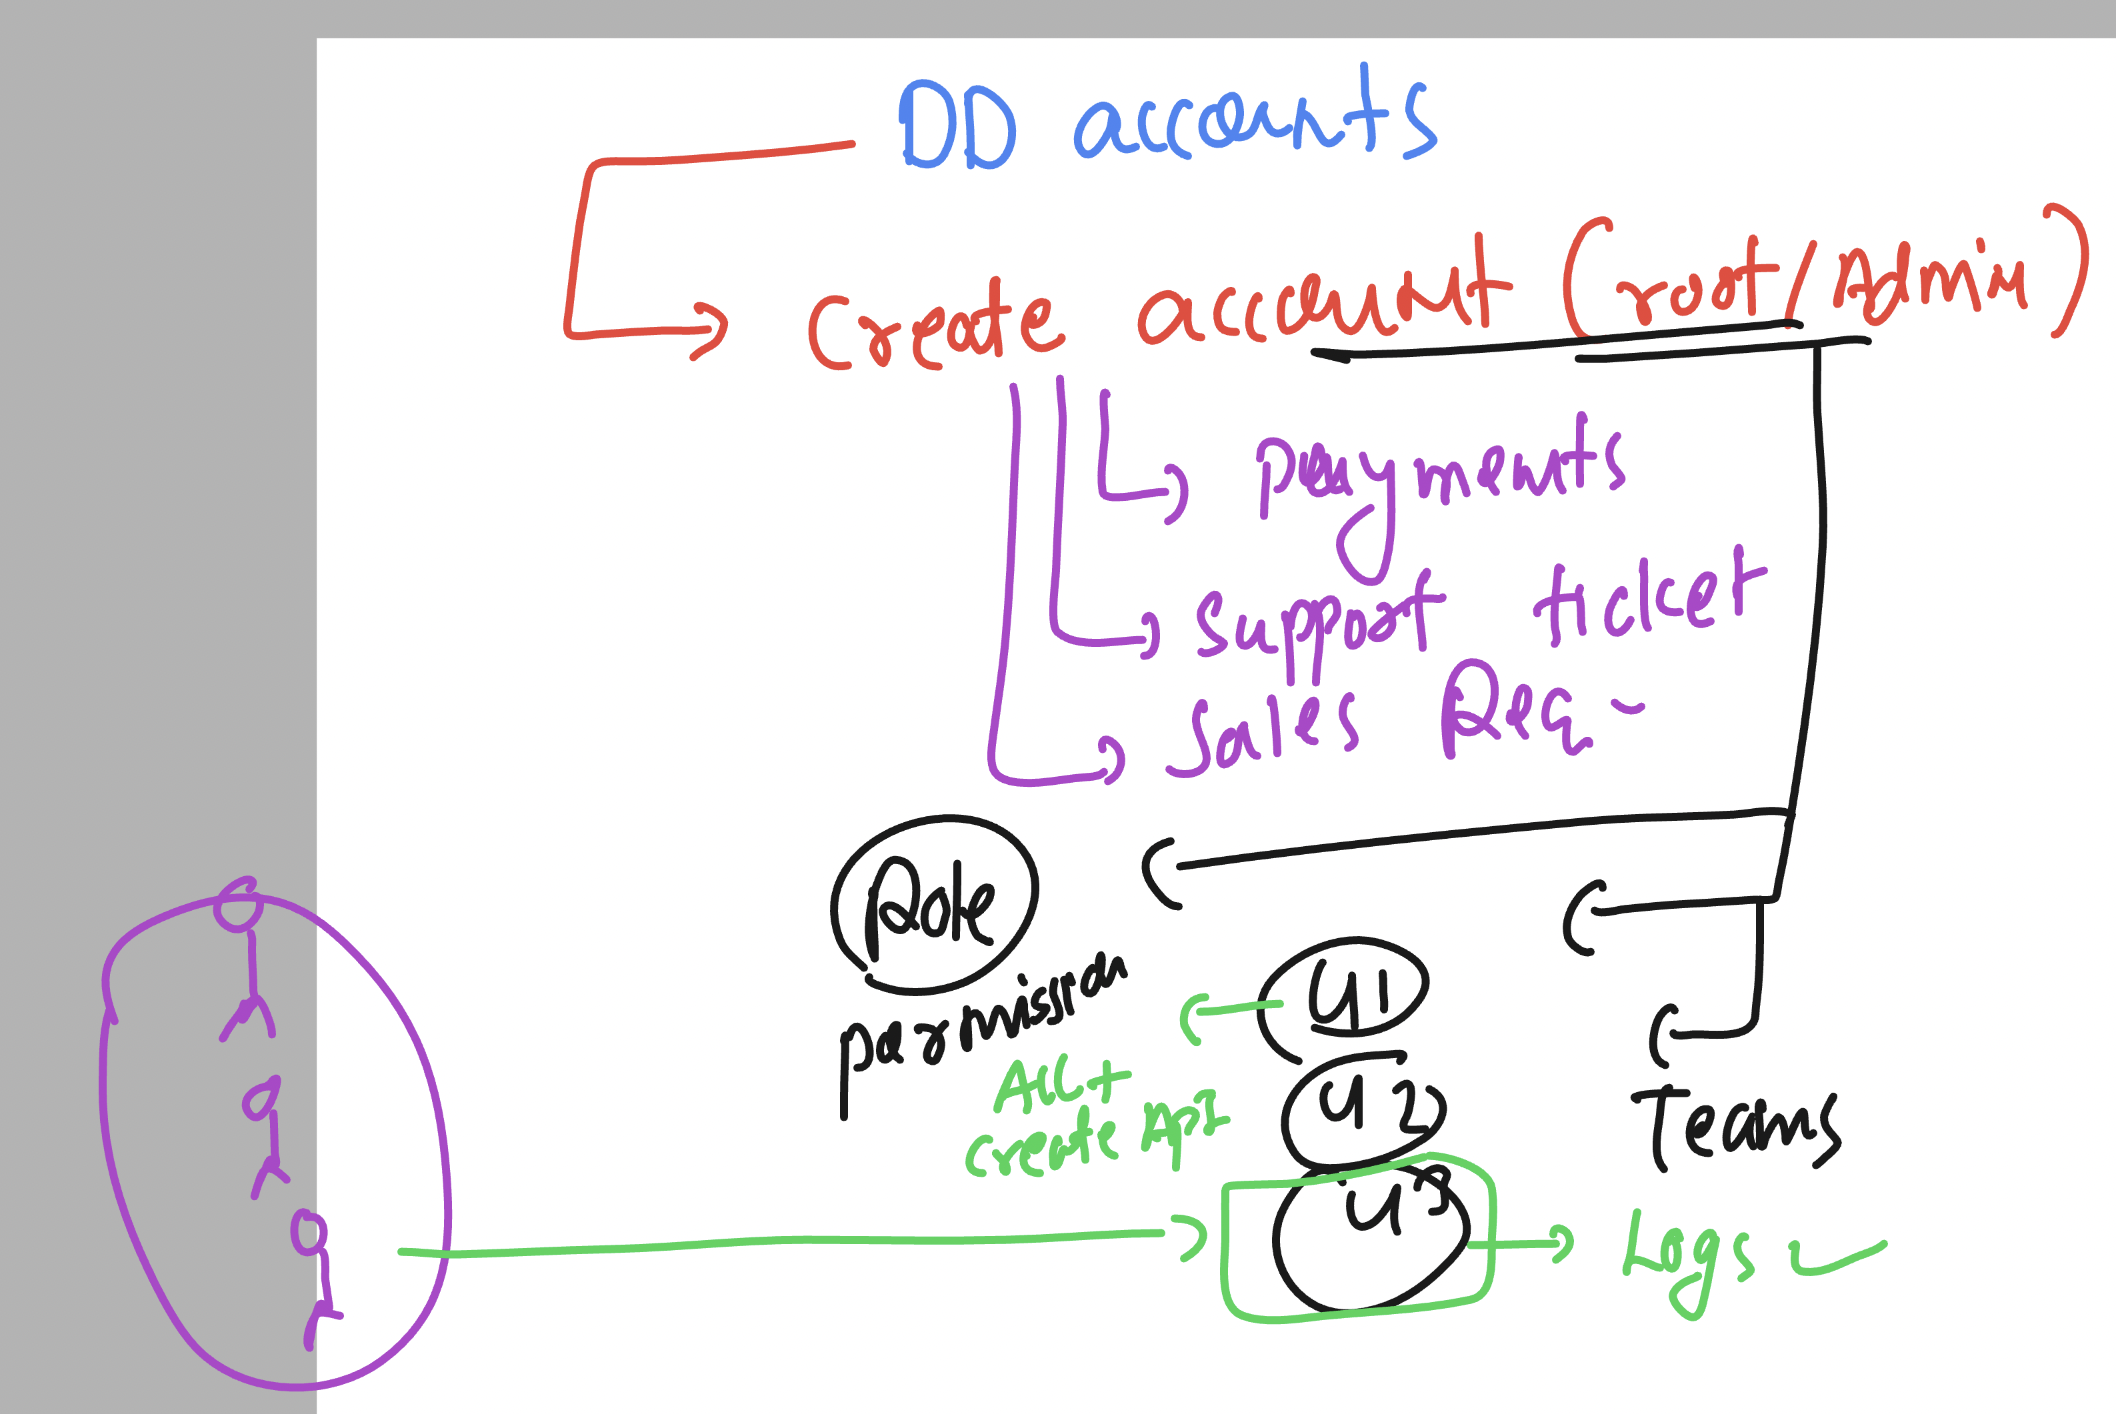 DD accounts
Create account (root/Admin)
payments
support ticket
Sales Req -
Role
permission
U1
Acc +
create API
U2
Teams
U3
Logs